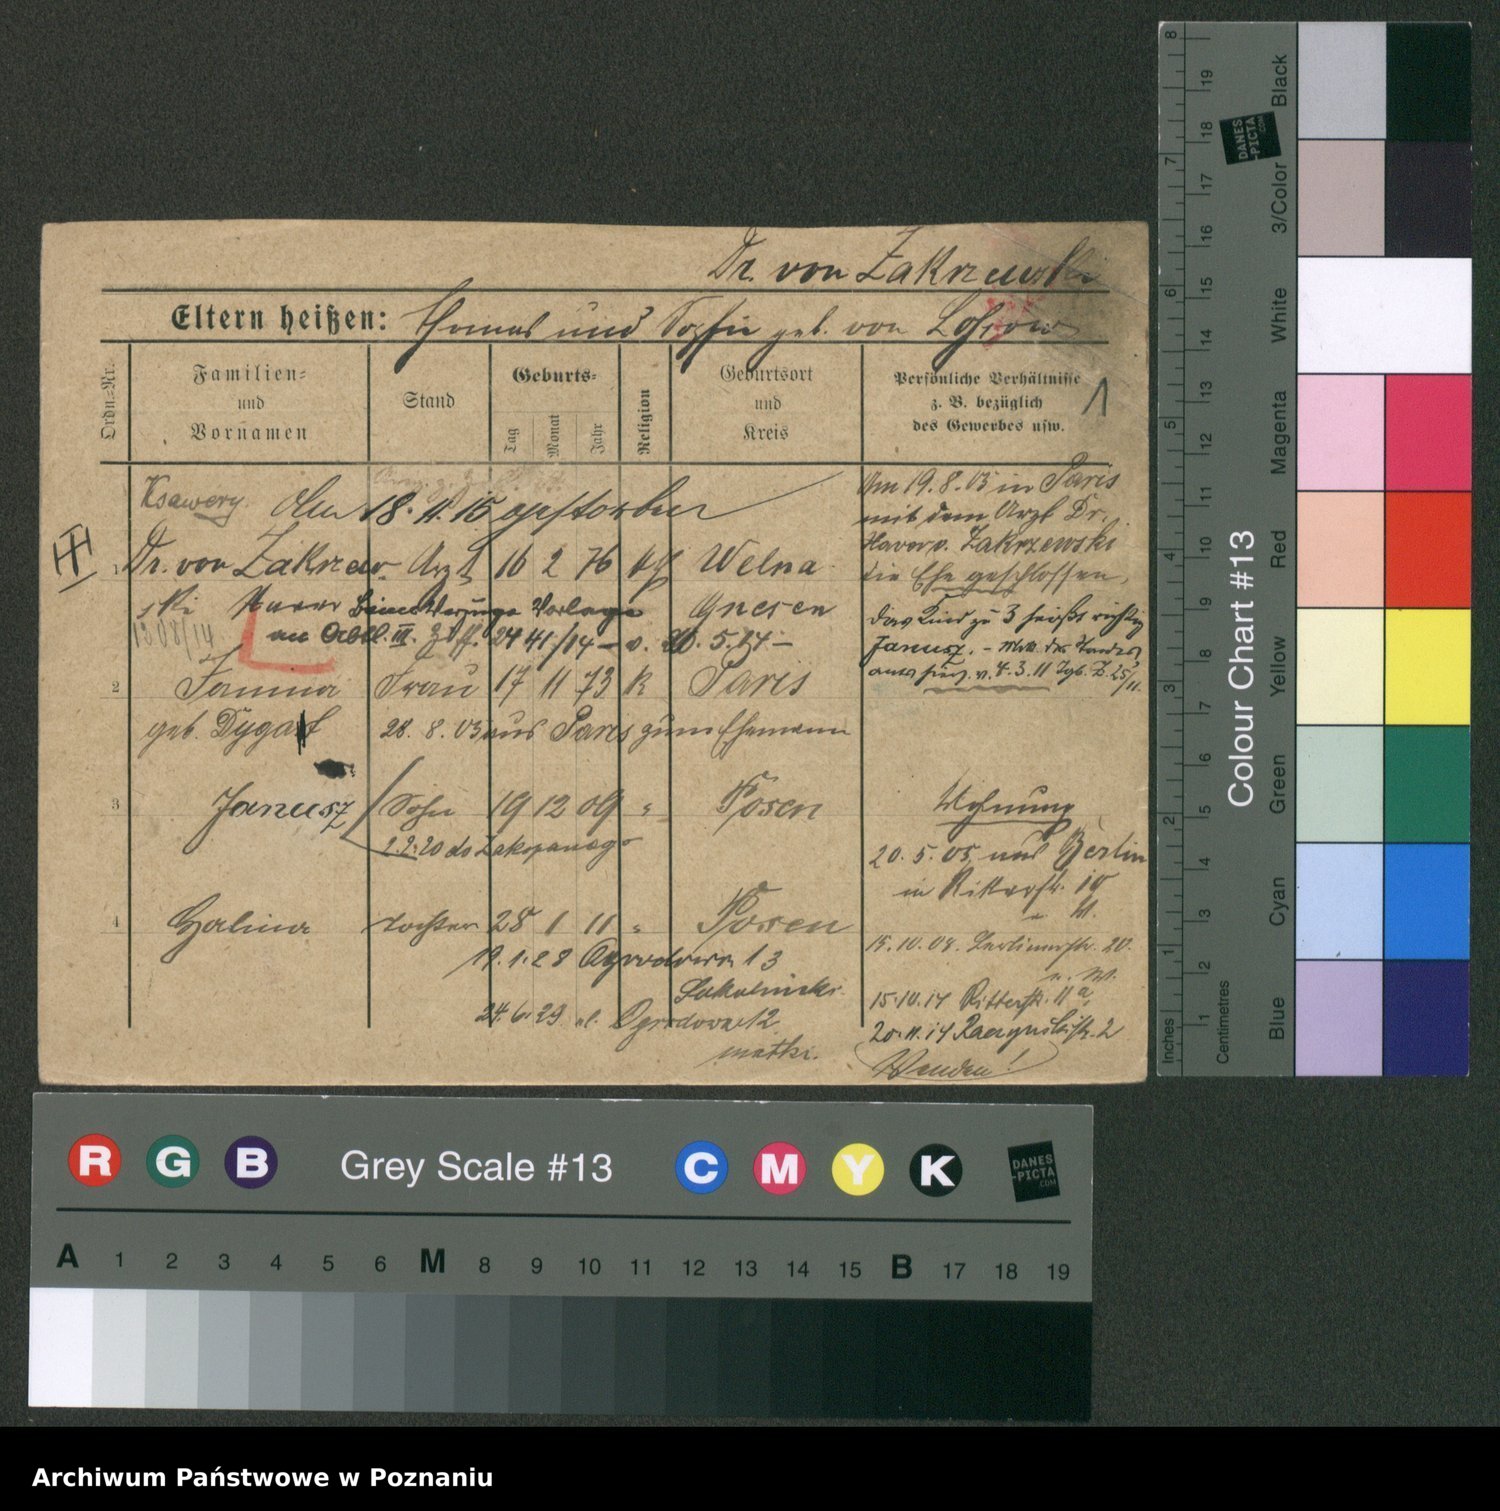 Dr. von Zakrzewski
Eltern heißen: Thomas und Sophie geb. von Lossow
Ordn.-Nr.
Familien-
und
Vornamen
Stand
Geburts-
Tag
Monat
Jahr
Religion
Geburtsort
und
Kreis
Persönliche Verhältnisse
z. B. bezüglich
des Gewerbes usw.
1
Ksawery. Am 18. 11. 15 gestorben
1 Dr. von Zakrzew- Arzt 16 2 76 kath Welna
ski Xaver Gnesen
1308/14
an Abtl. III. 2441/14 – v. 20. 5. 14 –
2 Janina Frau 17 11 73 k Paris
geb. Dygat 28. 8. 03 aus Paris zum Ehemann
3 Janusz Sohn 19 12 09 " Posen
2.2.20 do Zakopanego
4 Halina Tochter 28 1 11 " Posen
19.1.28 Ogrodowa 13
Sokolnicki
24.6.29 Ogrodowa 12
matki.
Am 19. 8. 03 in Paris
mit dem Arzt Dr.
Xaver v. Zakrzewski
die Ehe geschlossen.
Das Kind zu 3 heißt richtig
Janusz. – Mitt. des Standes
amts hier v. 4. 3. 11 Tgb. Z. 25/11.
Wohnung
20. 5. 05 aus Berlin
in Ritterstr. 10
15. 10. 08. Berlinerstr. 20.
15.10.14 Ritterstr. 11a
20.11.14 Raczynskistr. 2
Wenden!
Inches
1
2
3
4
5
6
7
8
Centimetres
1
2
3
4
5
6
7
8
9
10
11
12
13
14
15
16
17
18
19
Colour Chart #13
Blue
Cyan
Green
Yellow
Red
Magenta
White
3/Color
Black
DANES
-PICTA
.COM
R G B Grey Scale #13 C M Y K
DANES
-PICTA
.COM
A 1 2 3 4 5 6 M 8 9 10 11 12 13 14 15 B 17 18 19
Archiwum Państwowe w Poznaniu